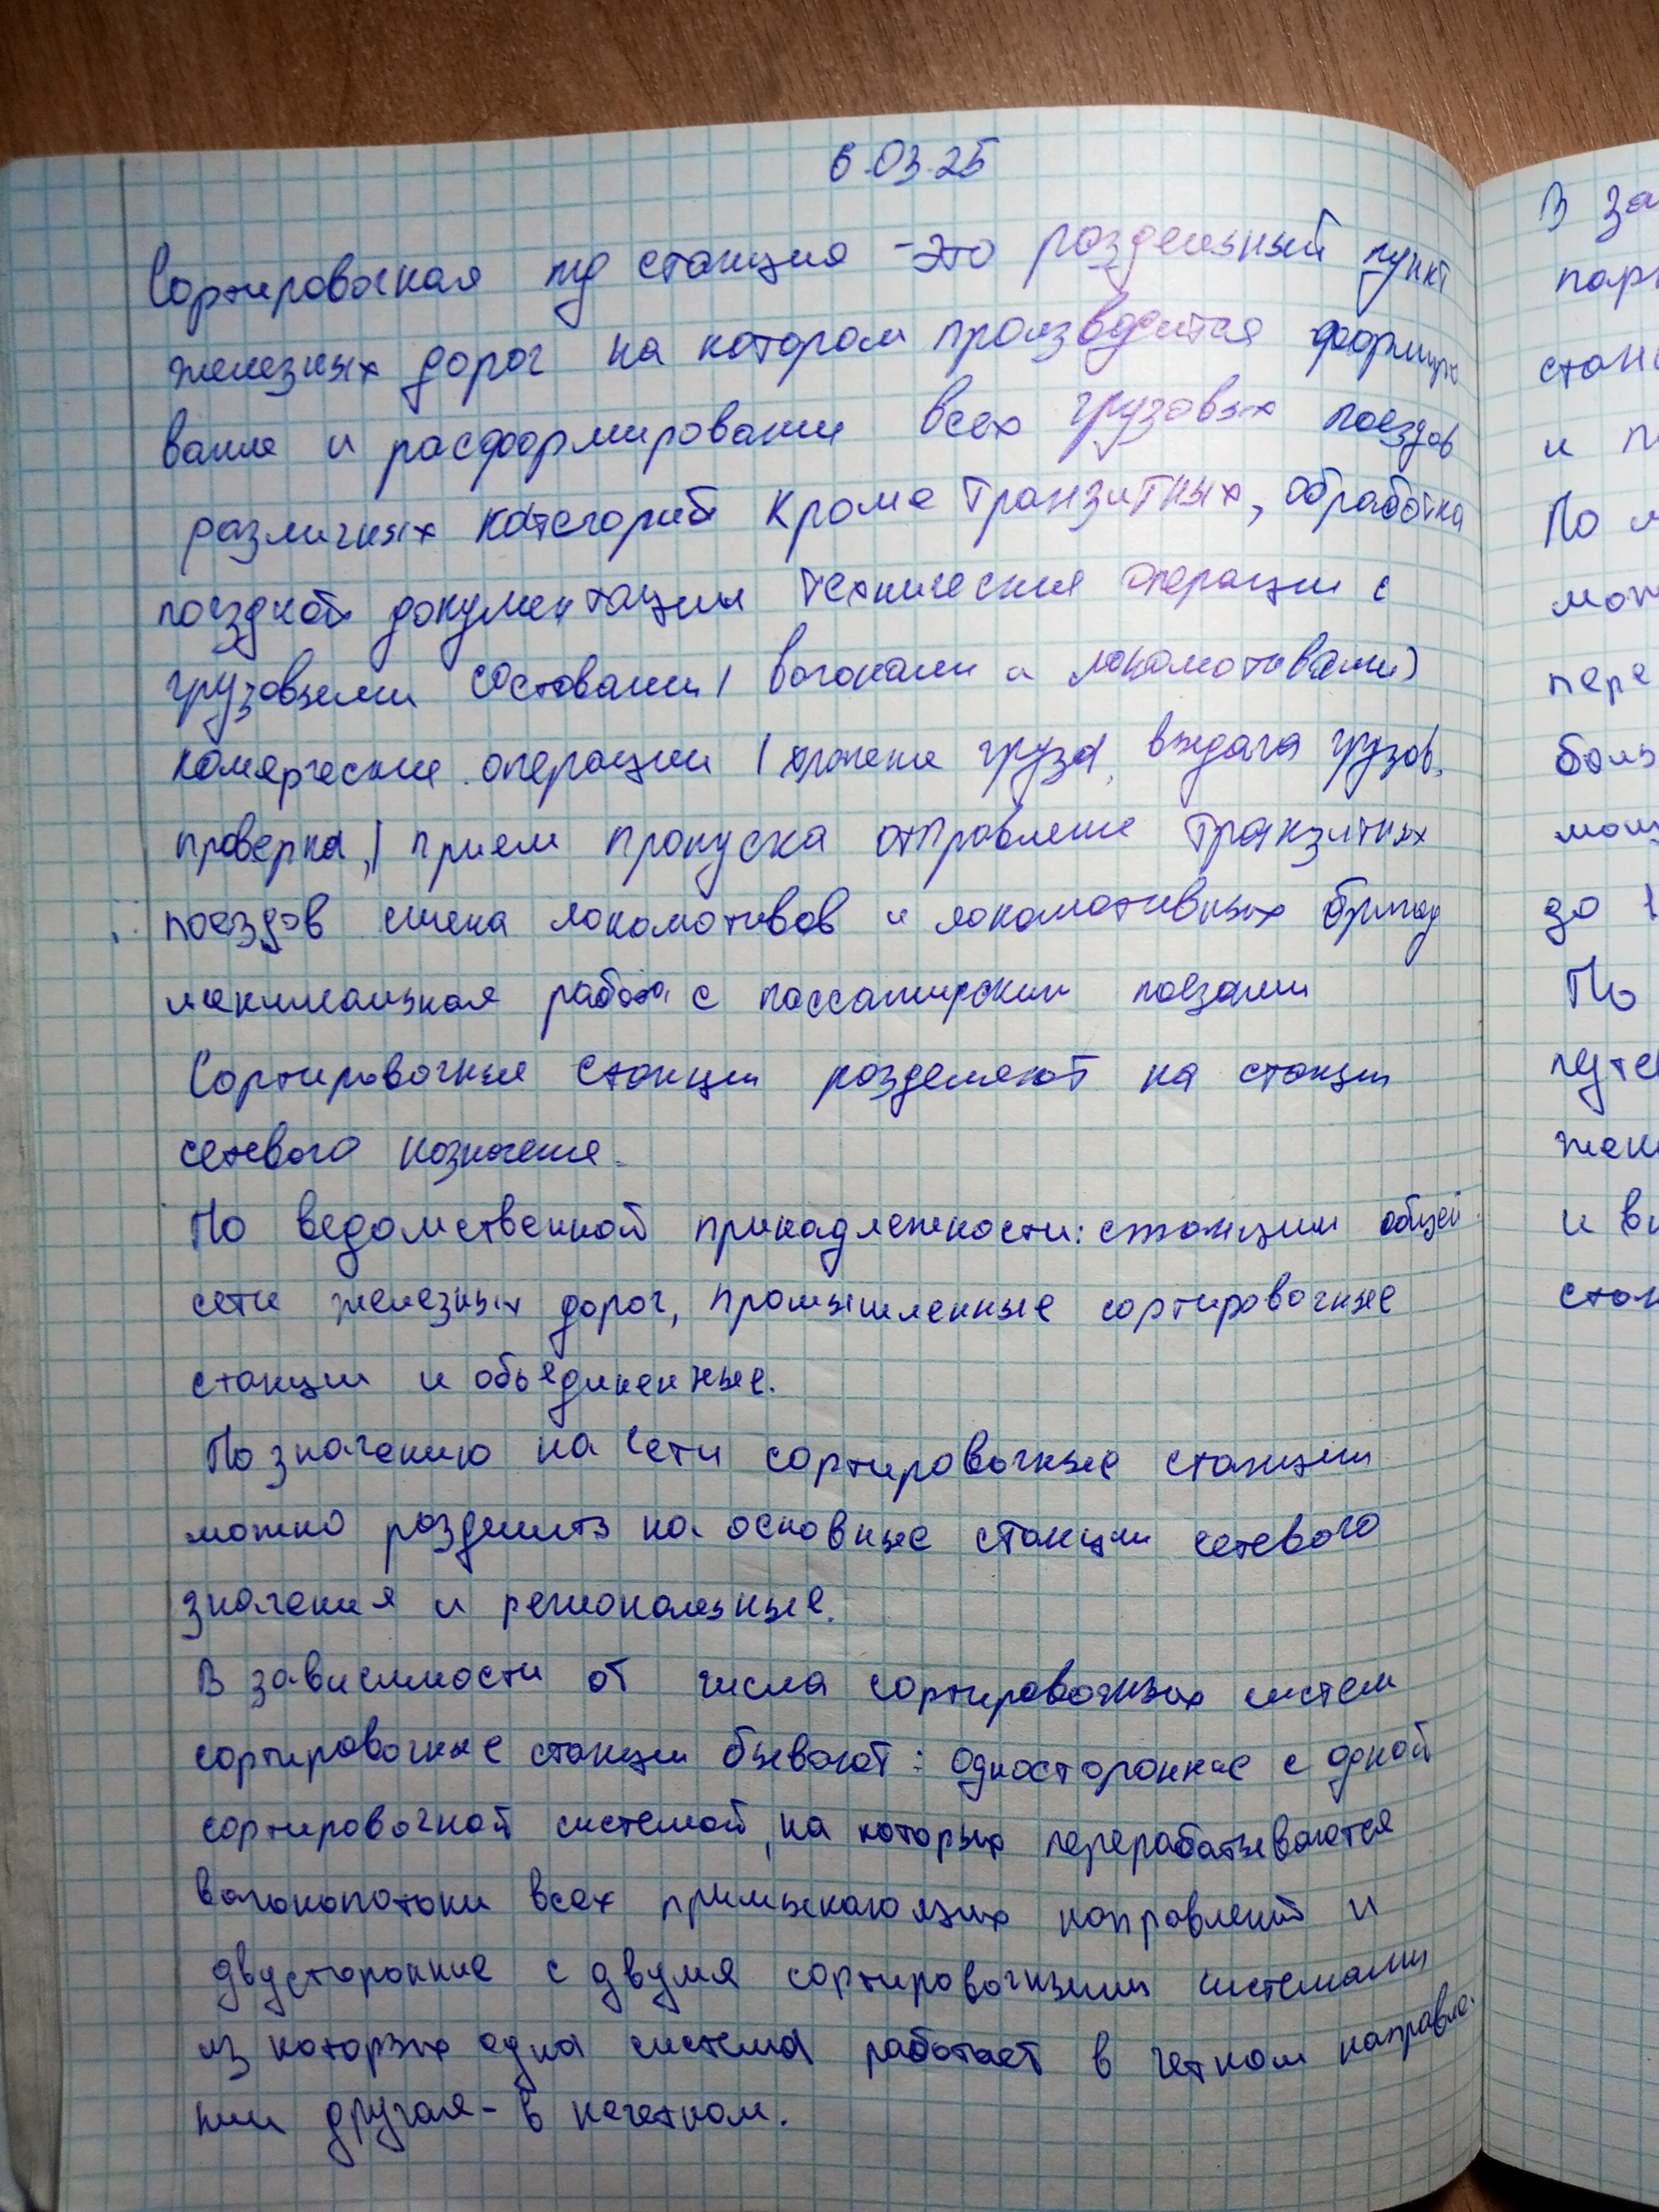 6.03.25
Сортировочная жд станция - это раздельный пункт
железных дорог на котором производится формиро
вание и расформирование всех грузовых поездов
различных категорий кроме транзитных, обработка
поездной документации технические операции с
грузовыми составами ( вагонами и локомотивами)
комерческие операции ( хранение груза, выдача грузов,
проверка,) прием пропуска отправление транзитных
поездов смена локомотивов и локомотивных бригад
минимальная работа с пассажирским поезами
Сортировочные станции разделяют на станции
сетевого назначение.
По ведомственной принадлежности: станции общей
сети железных дорог, промышленные сортировочные
станции и объединенные.
По значению на сети сортировочные станции
можно разделить на основные станции сетевого
значения и региональные.
В зависимости от числа сортировочных систем
сортировочные станции бывают: односторонние с одной
сортировочной системой, на которых перерабатываются
вагонопотоки всех примыкающих направлений и
двусторонние с двумя сортировочными системами
из которых одна система работает в четном направле-
нии другая - в нечетном.
В за
парк
стан
и п
По м
мож
пере
боль
мощ
до 1
По
путе
жен
и вы
стан